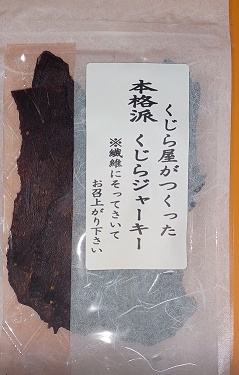 くじら屋がつくった
本格派 くじらジャーキー
※繊維にそってさいて
お召上がり下さい